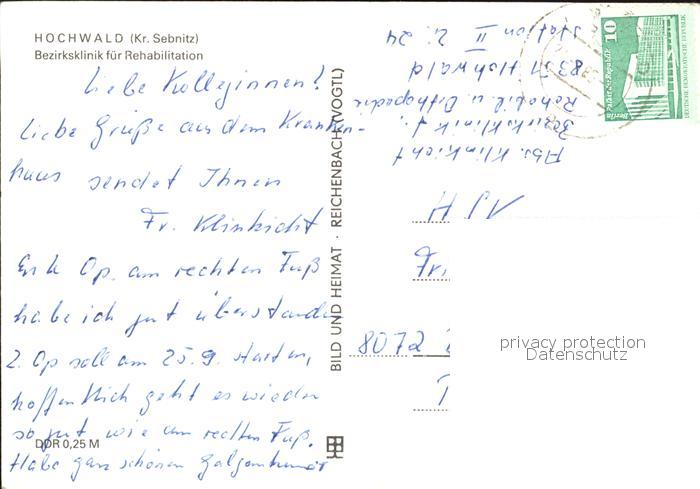 HOCHWALD (Kr. Sebnitz)
Bezirksklinik für Rehabilitation
Liebe Kolleginnen!
Liebe Grüße aus dem Kranken-
haus sendet Ihnen
Fr. Klinkicht
Erste Op. am rechten Fuß
habe ich gut überstanden
2. Op soll am 25.9. starten,
hoffentlich geht es wieder
so gut wie am rechten Fuß.
Habe ganz schönen Galgenhumor
DDR 0,25 M
BILD UND HEIMAT · REICHENBACH (VOGTL)
Abs. Klinkicht
Bezirksklinik f.
Rehabil. u. Orthopädie
8351 Hohwald
Station II Z. 24
10
Palast der Republik
Berlin
DEUTSCHE DEMOKRATISCHE REPUBLIK
Fr
8072
privacy protection
Datenschutz